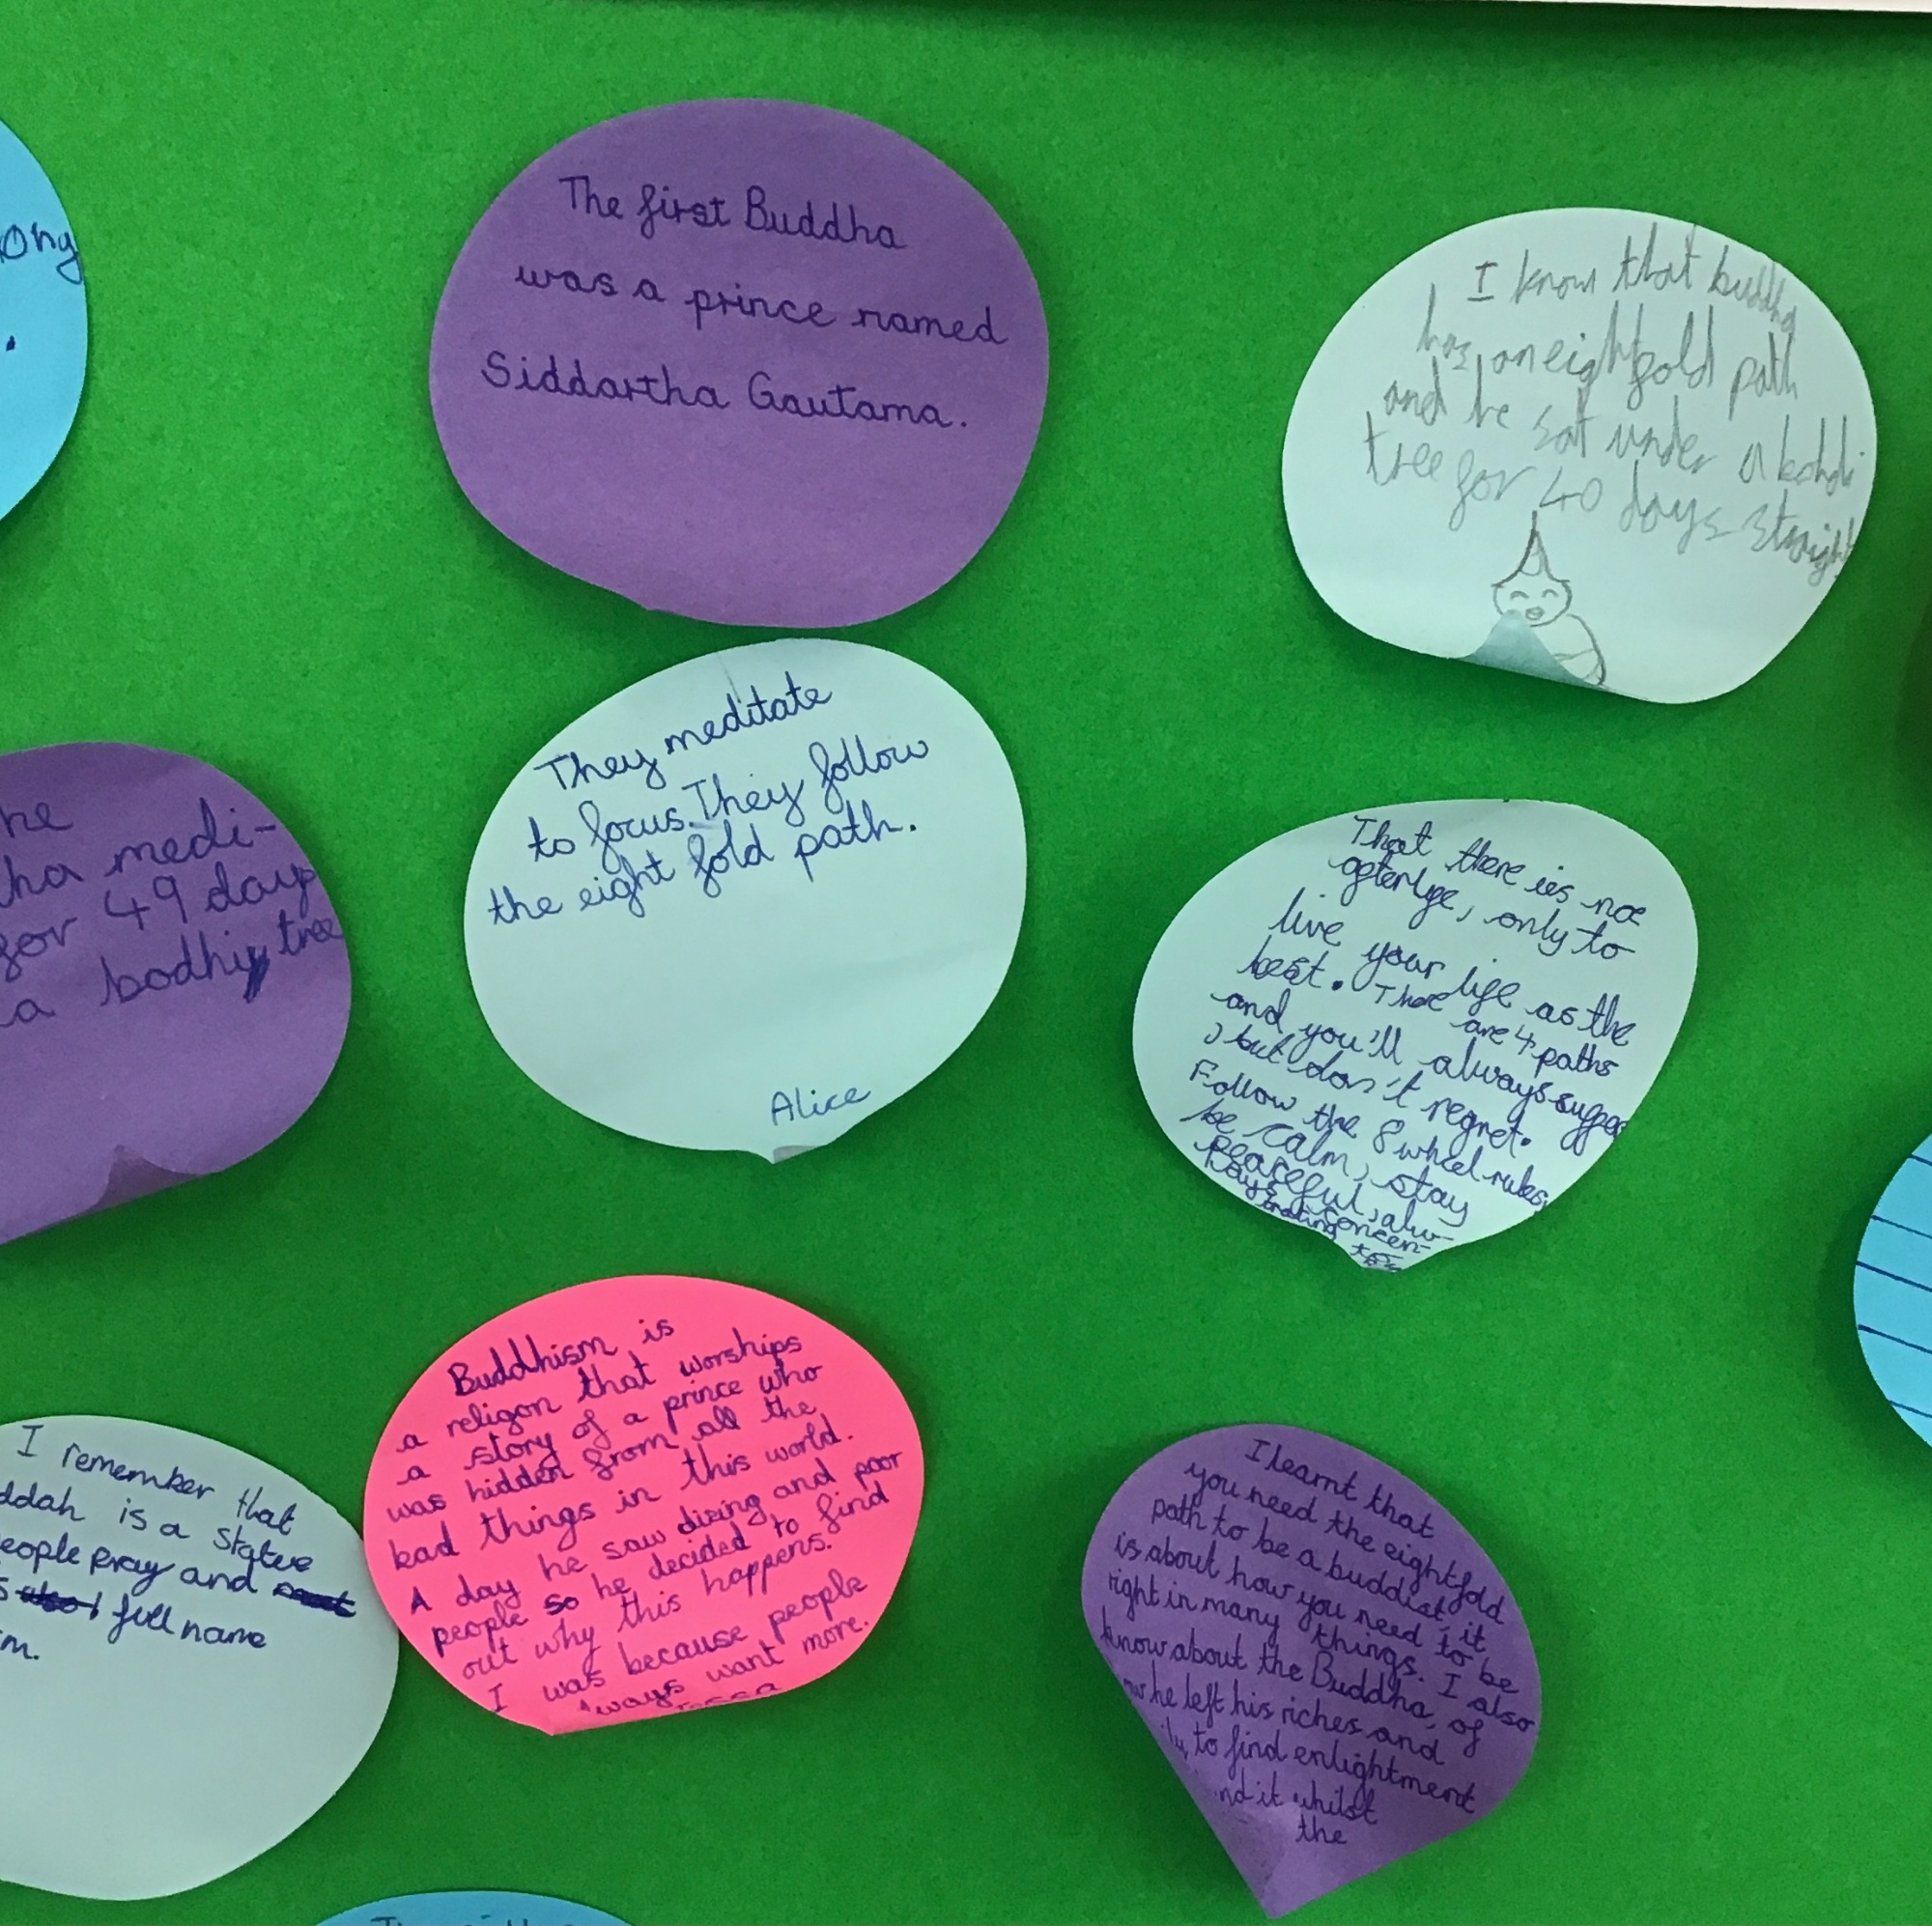 ong
.
The first Buddha
was a prince named
Siddartha Gautama.
I know that buddha
has an eightfold path
and he sat under a bohdi
tree for 40 days straight
They meditate
to focus. They follow
the eight fold path.
Alice
he
ha medi-
for 49 days
a bodhi tree
That there is not
afterlife, only to
live your life as the
best. There are 4 paths
and you'll always suffer
, but don't regret.
Follow the 8 wheel rules,
be calm, stay
peaceful, alw-
ays concen-
trating
Buddhism is
a religon that worships
a story of a prince who
was hidden from all the
bad things in this world.
A day he saw dieing and poor
people so he decided to find
out why this happens.
I was because people
always want more.
I remember that
ddah is a statue
eople pray and
s full name
m.
I learnt that
you need the eightfold
path to be a buddist, it
is about how you need to be
right in many things. I also
know about the Buddha, of
he left his riches and
to find enlightment
nd it whilst
the